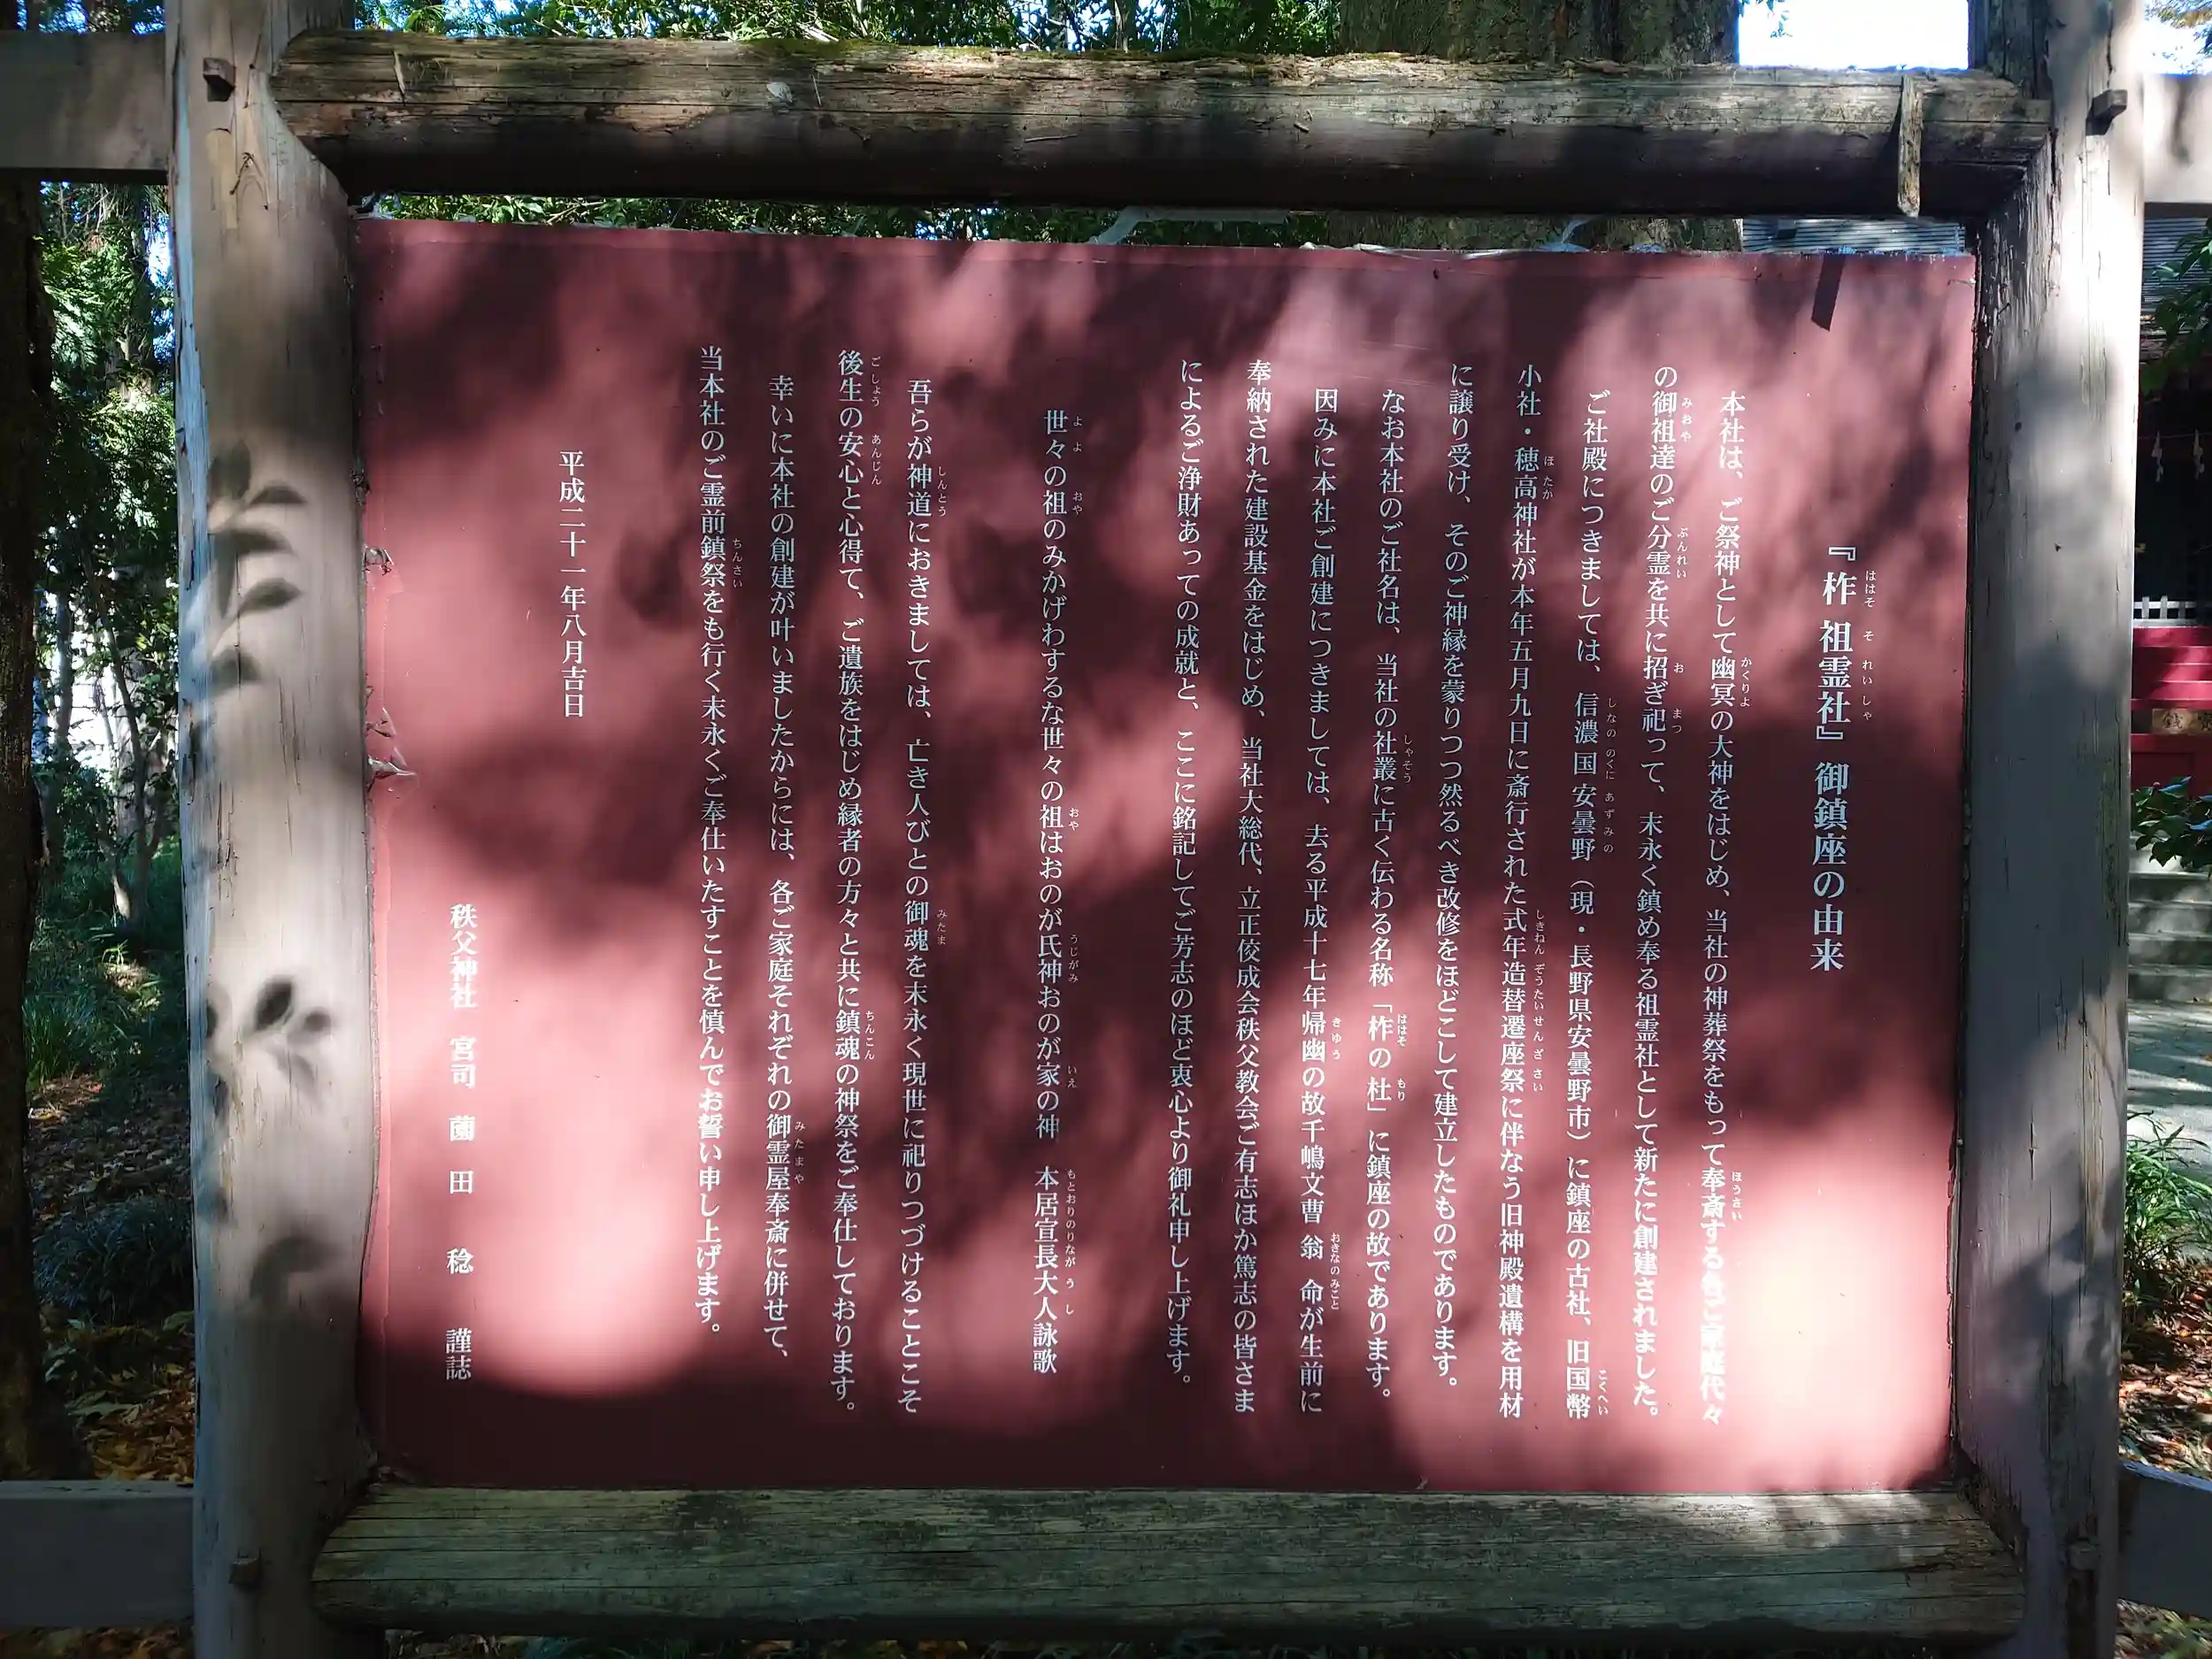 『柞祖霊社』御鎮座の由来
本社は、ご祭神として幽冥の大神をはじめ、当社の神葬祭をもって奉斎する各ご家庭代々
の御祖達のご分霊を共に招ぎ祀って、末永く鎮め奉る祖霊社として新たに創建されました。
ご社殿につきましては、信濃国安曇野（現・長野県安曇野市）に鎮座の古社、旧国幣
小社・穂高神社が本年五月九日に斎行された式年造替遷座祭に伴なう旧神殿遺構を用材
に譲り受け、そのご神縁を蒙りつつ然るべき改修をほどこして建立したものであります。
なお本社のご社名は、当社の社叢に古く伝わる名称「柞の杜」に鎮座の故であります。
因みに本社ご創建につきましては、去る平成十七年帰幽の故千嶋文曹翁命が生前に
奉納された建設基金をはじめ、当社大総代、立正佼成会秩父教会ご有志ほか篤志の皆さま
によるご浄財あっての成就と、ここに銘記してご芳志のほど衷心より御礼申し上げます。
世々の祖のみかげわするな世々の祖はおのが氏神おのが家の神　本居宣長大人詠歌
吾らが神道におきましては、亡き人びとの御魂を末永く現世に祀りつづけることこそ
後生の安心と心得て、ご遺族をはじめ縁者の方々と共に鎮魂の神祭をご奉仕しております。
幸いに本社の創建が叶いましたからには、各ご家庭それぞれの御霊屋奉斎に併せて、
当本社のご霊前鎮祭をも行く末永くご奉仕いたすことを慎んでお誓い申し上げます。
平成二十一年八月吉日
秩父神社　宮司　薗田　稔　謹誌